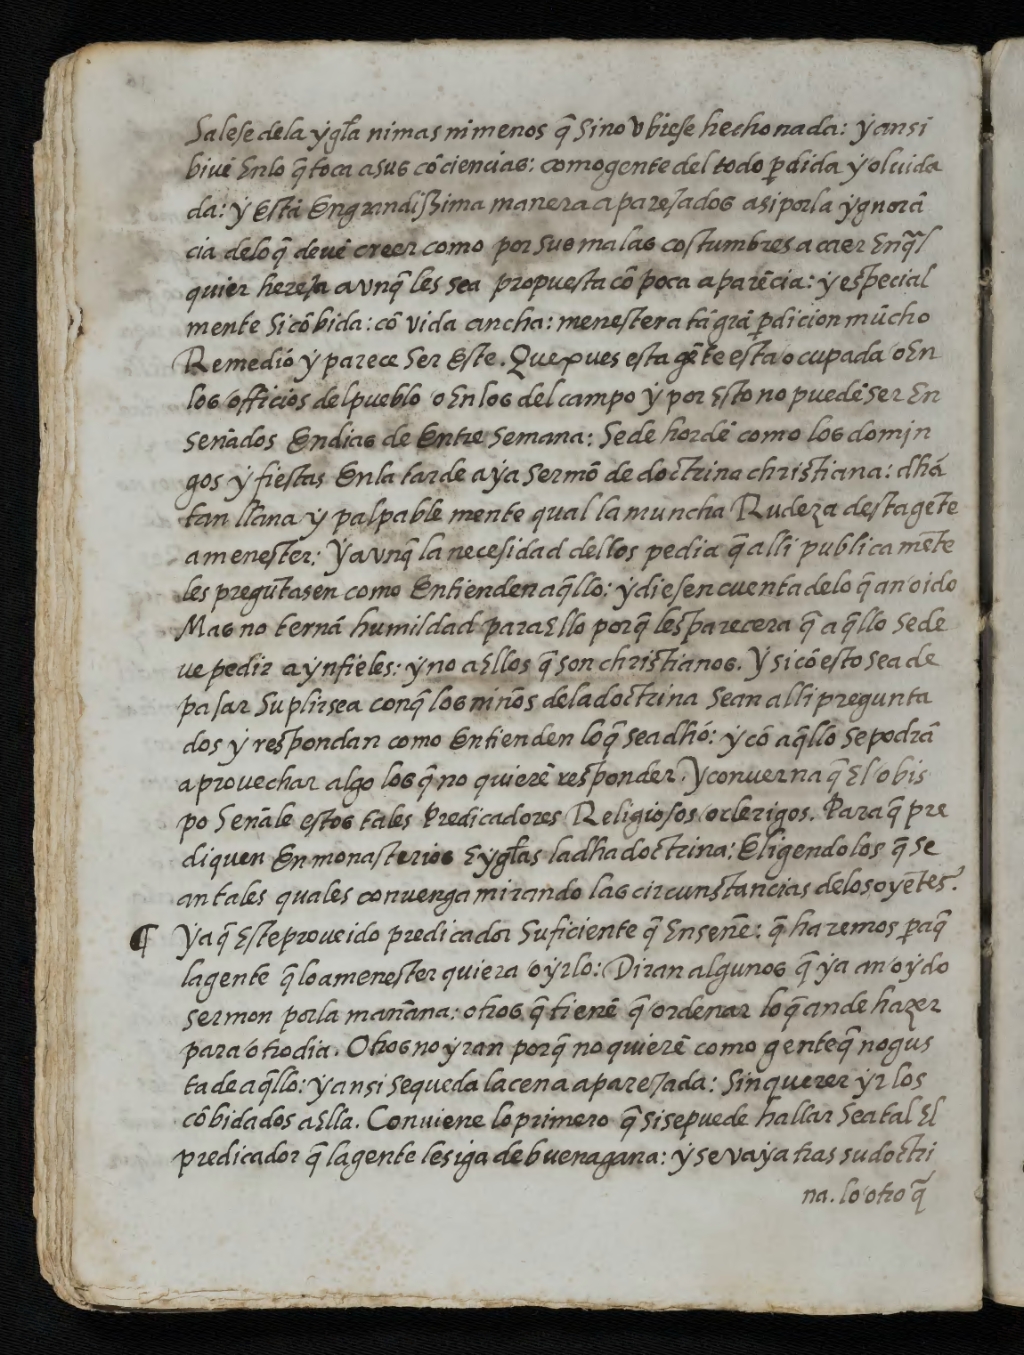 Salese dela ygła nimas nimenos q̃ Sino vbiese hecho nada: ẏ ansi
biuē Enlo q̃ toca asus cōciencias: como gente del todo p̱dida ẏ oluida
da: ẏ Està Engrandissima manera aparejados asi porla ẏgnorā
cia delo q̃ deuē creer como por Sus malas costumbres a caer Enq̃l
quier hereja avnq̃ les sea propuesta cō poca aparēcia: ẏ especial
mente Si cōbida: cō vida ancha: menester a tā grā p̱dicion mūcho
Remedió ẏ parece Ser Este. Que pues esta gēte està ocupada o En
los officios del pueblo o En los del campo ẏ por Esto no puedē Ser En
señados En dias de Entre Semana: Se de hordē como los domin
gos ẏ fiestas En la tarde aẏa Sermō de doctrina christiana: dhá
tan llana ẏ palpable mente qual la muncha Rudeza desta gēte
a menester: Ẏ avnq̃ la necesidad dellos pedia q̃ alli publica mēte
les pregūtasen como Entienden aq̃llo: ẏ diesen cuenta delo q̃ an oido
Mas no ternā humildad para Ello porq̃ les parecera q̃ aq̃llo Se de
ue pedir a ẏnfieles: ẏ no a Ellos q̃ son christianos. Ẏ si cō esto sea de
pasar Suplirsea conq̃ los niños dela doctrina Sean alli pregunta
dos ẏ respondan como Entienden loq̃ sea dhó: ẏ cō aq̃llo Se podrā
aprouechar algo los q̃ no quierē responder. Ẏ conuerna q̃ El obis
po Señale estos tales Predicadores Religiosos o clerigos. Para q̃ pre
diquen En monasterios E ẏgłas la dha doctrina: Eligendolos q̃ Se
an tales quales conuenga mirando las circunstancias delos oyētes.
¶ Ẏa q̃ Este proueido predicador Suficiente q̃ Enseñe: q̃ haremos p̱aq̃
la gente q̃ lo a menester quiera oẏrlo: Diran algunos q̃ ẏa an oẏdo
sermon porla mañana: otros q̃ tienē q̃ ordenar lo q̃ ande hazer
para otro dia. Otros no ẏran porq̃ no quierē como gente q̃ no gus
ta de aq̃llo: ẏ ansi se queda la cena aparejada: Sin querer ẏr los
cōbidados a Ella. Conuiene lo primero q̃ si se puede hallar Sea tal El
predicador q̃ la gente le siga de buena gana: ẏ se vaẏa tras su doctri
na. lo otro q̃